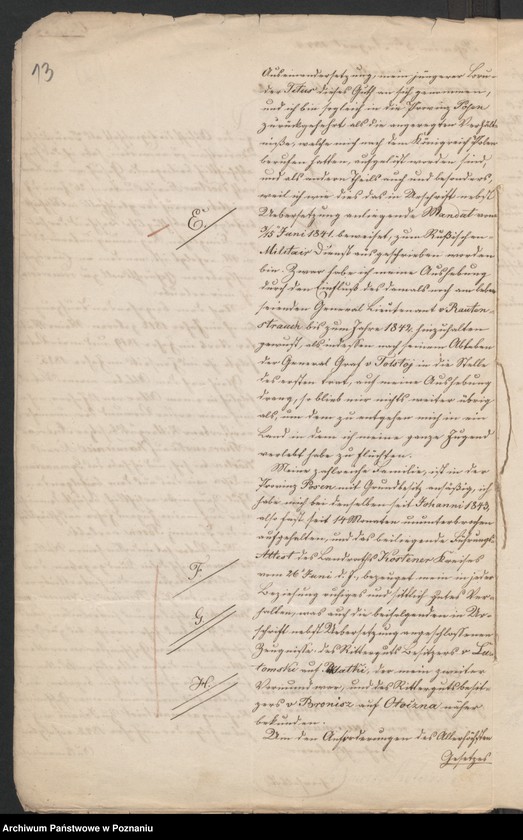 13
Auseinandersetzung, mein jüngerer Bru-
der Titus dieses Guth an sich genommen,
und ich bin sogleich in die Provinz Posen
zurückgekehrt als die angeregten Verhält-
nisse, welche mich nach dem Königreich Polen
berufen hatten, aufgelöst worden sind,
und als andern Theils auch und besonders,
weil ich wie dies das in Urschrift nebst
Uebersetzung anliegende Mandat vom
E. 3/15 Juni 1841. beweiset, zum Rußischen
Militair Dienst ausgeschrieben worden
bin. Zwar habe ich meine Aushebung
durch den Einfluß des damals noch am Leben
seienden General Lieutenant v Rauten-
strauch bis zum Jahre 1842. hinzuhalten
gewußt, als indessen nach seinem Ableben
der General Graf v Tolstoj in die Stelle
des ersten trat, auf meine Aushebung
drang, so blieb mir nichts weiter übrig
als, um dem zu entgehen mich in ein
Land in dem ich meine ganze Jugend
verlebt habe zu flüchten.
Meine zahlreiche Familie, ist in der
Provinz Posen mit Grundbesitz ansäßig, ich
habe mich bei denselben seit Johanni 1843,
also fast seit 14 Monaten ununterbrochen
aufgehalten, und das beiliegende Führungs-
F. Attest des Landraths Kostener Kreises
vom 26 Juni d. J., bezeuget mein in jeder
Beziehung ruhiges und sittlich gutes Ver-
G. halten, was auch die beifolgenden in Ur-
schrift nebst Uebersetzung angeschlossenen
Zeugnisse des Ritterguts Besitzers v
auf der mein zweiter
H. Vormund war, und des Rittergutsbesit-
zers v Bronisz auf Otoczna näher
bekunden.
Um den Anforderungen des Allerhöchsten
Gesetzes
Archiwum Państwowe w Poznaniu